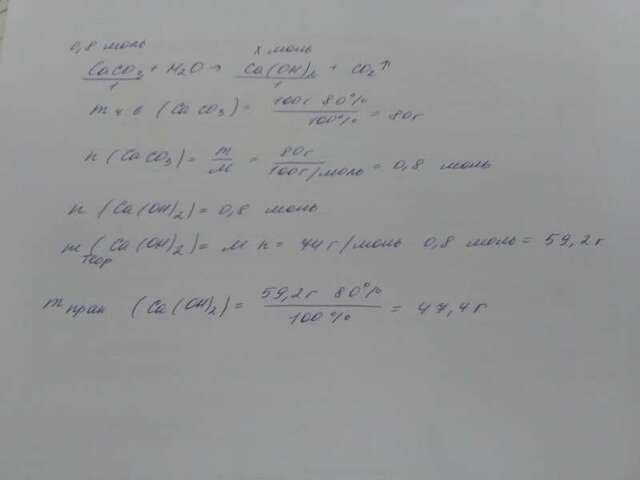 0,8 моль х моль
CaCO3 + H2O → Ca(OH)2 + CO2↑
1 1
m ч в (CaCO3) = 100г 80% / 100% = 80г
n (CaCO3) = m / M = 80г / 100г/моль = 0,8 моль
n (Ca(OH)2) = 0,8 моль
m теор (Ca(OH)2) = M n = 44г/моль 0,8 моль = 59,2г
m прак (Ca(OH)2) = 59,2г 80% / 100% = 47,4г